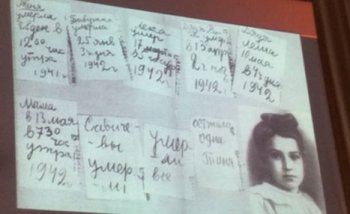 Женя
умерла
28 ден в
12 00 час
утра
1941 г
Бабушка
умерла
25 янв
3 ч дня
1942 г
Лека
умер
17 марта
1942
Дядя Вася
умер
в 13 апр
2 ч ноч
1942
Дядя
Леша
10 мая
1942
Мама
в 13 мая
в 7 30
час
утра
1942
Савиче-
-вы
умер
ли
умер
ли
все
осталась
одна
Таня